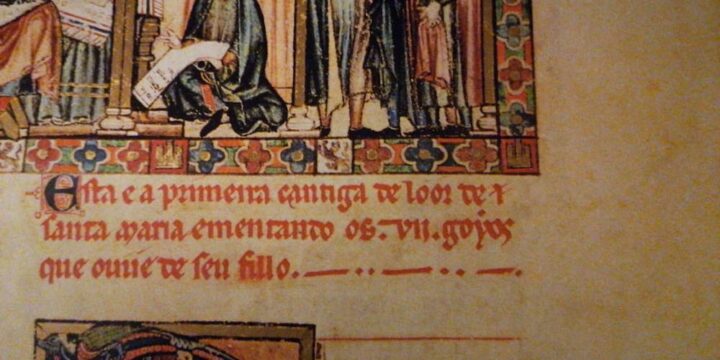 Esta e a primeira cantiga de loor de
santa maria ementando os .vii. goyos
que ouue de seu fillo.